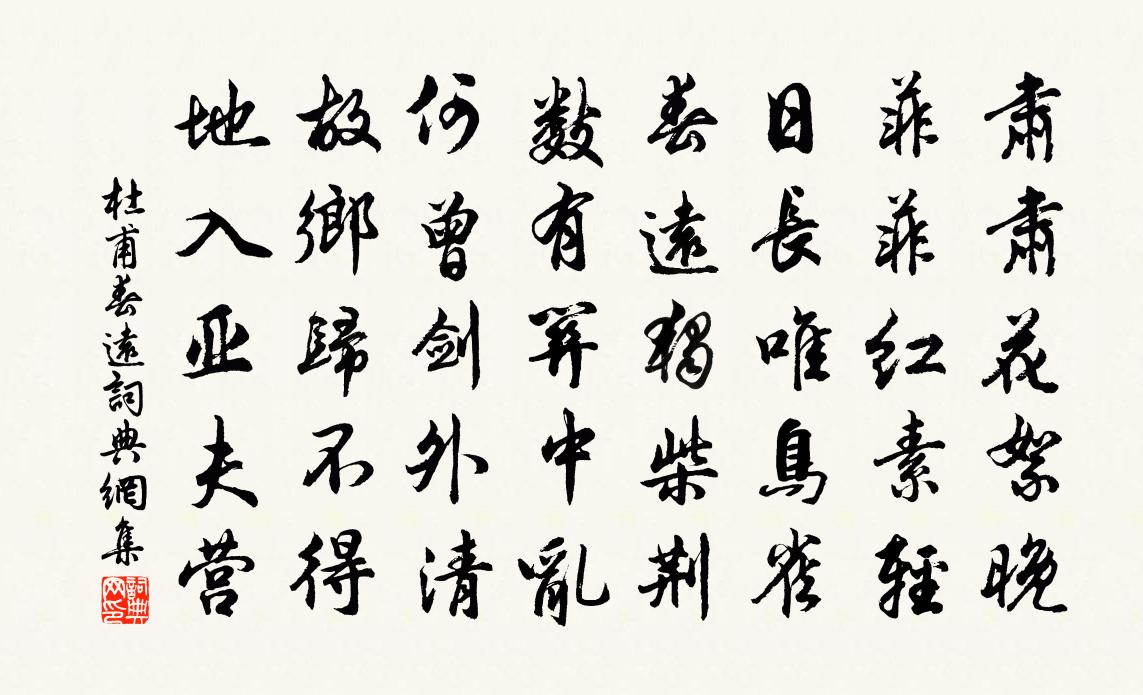 肅肅花絮晚
菲菲红素輕
日長唯鳥雀
春遠獨柴荆
數有關中亂
何曾劍外清
故鄉歸不得
地入亚夫营
杜甫春遠詞典網集
詞典网印